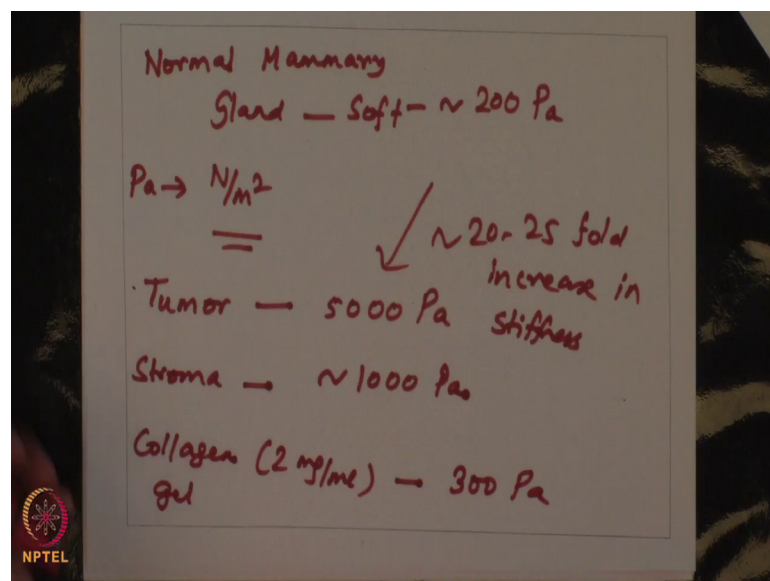 Normal Mammary
Gland — Soft — ~ 200 Pa
Pa → N/m²
~ 20-25 fold
increase in
stiffness
Tumor — 5000 Pa
Stroma — ~1000 Pa.
Collagen (2 mg/ml) — 300 Pa
gel
NPTEL